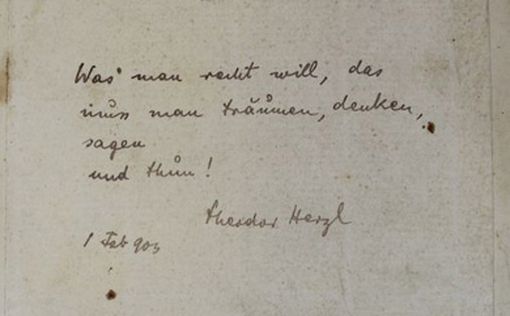 Was man recht will, das
muss man träumen, denken,
sagen
und thun!
Theodor Herzl
1 Feb 903